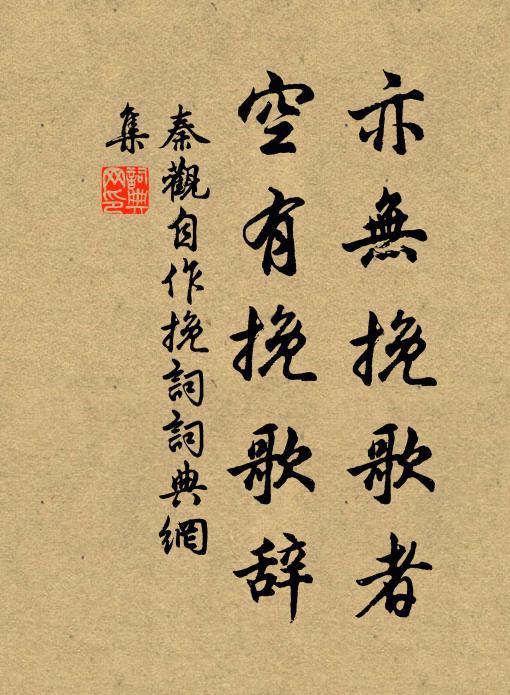 亦無挽歌者
空有挽歌辞
秦觀自作挽詞詞典網
集
詞典网印